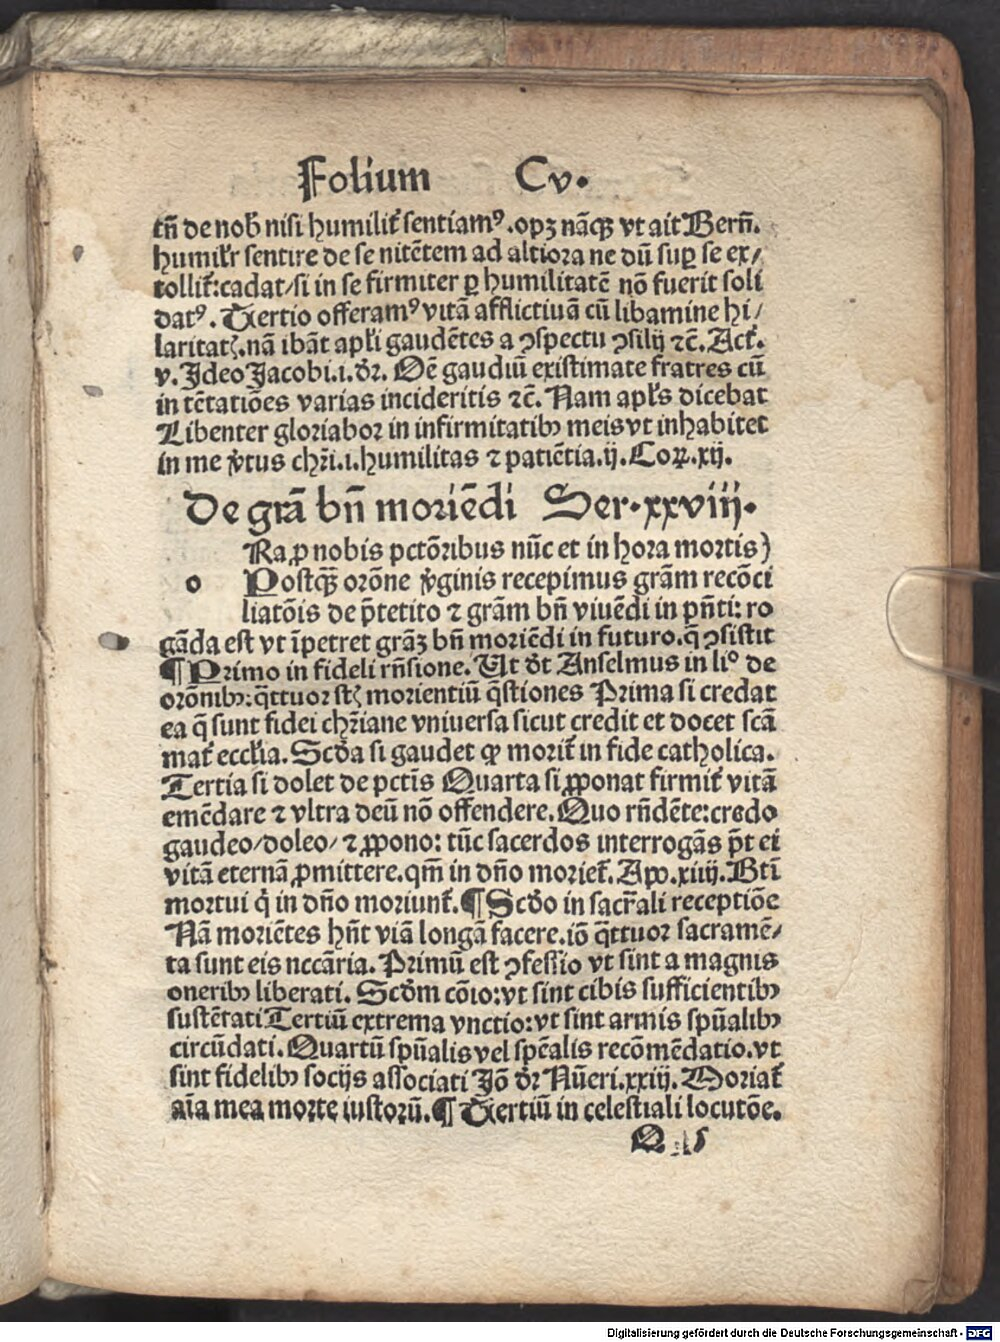 Folium Cv.
tñ de nob̄ nisi humilit᷑ sentiam⁹.opꝫ nāqꝫ vt ait Bern̄.
humilr̄ sentire de se nitētem ad altiora ne dū suꝑ se ex/
tollit᷑:cadat/si in se firmiter ꝑ humilitatē nō fuerit soli
dat⁹. Tertio offeram⁹ vitā afflictiuā cū libamine hi/
laritatꝭ.nā ibāt apłi gaudētes a ꝯspectu ꝯsilij ⁊c̄. Act᷑.
v. Ideo Jacobi.i.dr̄. Oē gaudiū existimate fratres cū
in tētatiōes varias incideritis ⁊c̄. Nam apłs dicebat
Libenter gloriabor in infirmitatibꝰ meis vt inhabitet
in me v̓tus chr̄i.i.humilitas ⁊ patiētia.ij.Coꝝ.xij.
De grā bn̄ moriēdi Ser.xxviij.
Ra ꝓ nobis pctōribus nūc et in hora mortis)
o Postqꝫ̄ orōne v̓ginis recepimus grām recōci
liatōis de p̄terito ⁊ grām bn̄ viuēdi in pn̄ti: ro
gāda est vt īpetret grāꝫ bn̄ moriēdi in futuro.q̄ ꝯsistit
¶Primo in fideli rn̄sione. Ut dr̄t Anselmus in li° de
orōnibꝰ:q̄ttuor st̄ꝭ morientiū q̄stiones Prima si credat
ea q̄ sunt fidei chr̄iane vniuersa sicut credit et docet scā
mat᷑ eccłia. Scd̓a si gaudet ꝙ morit᷑ in fide catholica.
Tertia si dolet de pctīs Quarta si ꝓponat firmit᷑ vitā
emēdare ⁊ vltra deū nō offendere.Quo rn̄dēte:credo
gaudeo/doleo/⁊ ꝓpono: tūc sacerdos interrogās p̄t ei
vitā eternā ꝓmittere.qm̄ in dn̄o moriet᷑. Apo.xiiij.Btī
mortui q̇ in dn̄o moriunt᷑.¶Scd̓o in sacr̄ali receptiōe
Nā moriētes hn̄t viā longā facere.iō q̄ttuor sacramē/
ta sunt eis nccāria. Primū est ꝯfessio vt sint a magnis
oneribꝰ liberati. Scd̓m cōio:vt sint cibis sufficientibꝰ
sustētati Tertiū extrema vnctio:vt sint armis spūalibꝰ
circūdati. Quartū spūalis vel spēalis recōmēdatio.vt
sint fidelibꝰ socijs associati Jō dr̄ Nūeri.xxiij. Moriat᷑
aīa mea morte iustorū.¶Tertiū in celestiali locutōe.
Digitalisierung gefördert durch die Deutsche Forschungsgemeinschaft - DFG